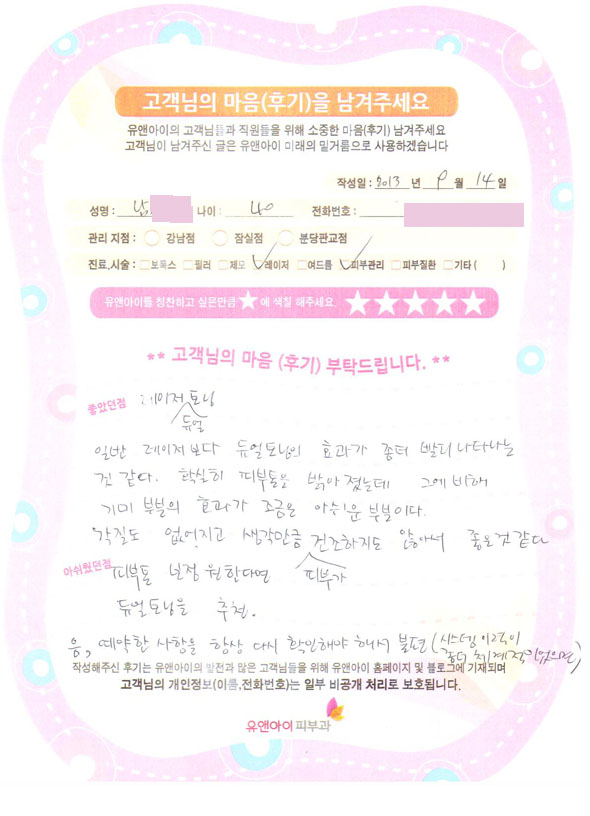 고객님의 마음(후기)을 남겨주세요
유앤아이의 고객님들과 직원들을 위해 소중한 마음(후기) 남겨주세요
고객님이 남겨주신 글은 유앤아이 미래의 밑거름으로 사용하겠습니다
작성일 : 2013 년 9 월 14 일
성명 : 나이 : 전화번호 :
관리 지점 : 강남점 잠실점 분당판교점
진료,시술 : 보톡스 필러 제모 레이저 여드름 피부관리 피부질환 기타 ( )
유앤아이를 칭찬하고 싶은만큼 ★에 색칠 해주세요. ★★★★★
** 고객님의 마음 (후기) 부탁드립니다. **
좋았던점 레이저 토닝
듀얼
일반 레이저보다 듀얼토닝의 효과가 좀더 빨리 나타나는
것 같다. 확실히 피부톤은 밝아졌는데 그에 비해
기미 부분의 효과가 조금은 아쉬운 부분이다.
각질도 없어지고 생각만큼 건조하지도 않아서 좋은것 같다
아쉬웠던점 피부톤 보정 원한다면 피부가
듀얼토닝을 추천.
음, 예약한 사항을 항상 다시 확인해야 해서 불편 (시스템이
좀더 체계적이었으면)
작성해주신 후기는 유앤아이의 발전과 많은 고객님들을 위해 유앤아이 홈페이지 및 블로그에 기재되며
고객님의 개인정보(이름,전화번호)는 일부 비공개 처리로 보호됩니다.
유앤아이피부과